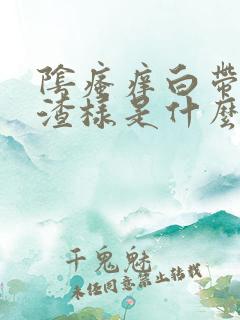 陰瘙癢白帶
渣樣是什麼
千鬼魅
未經同意禁止轉載